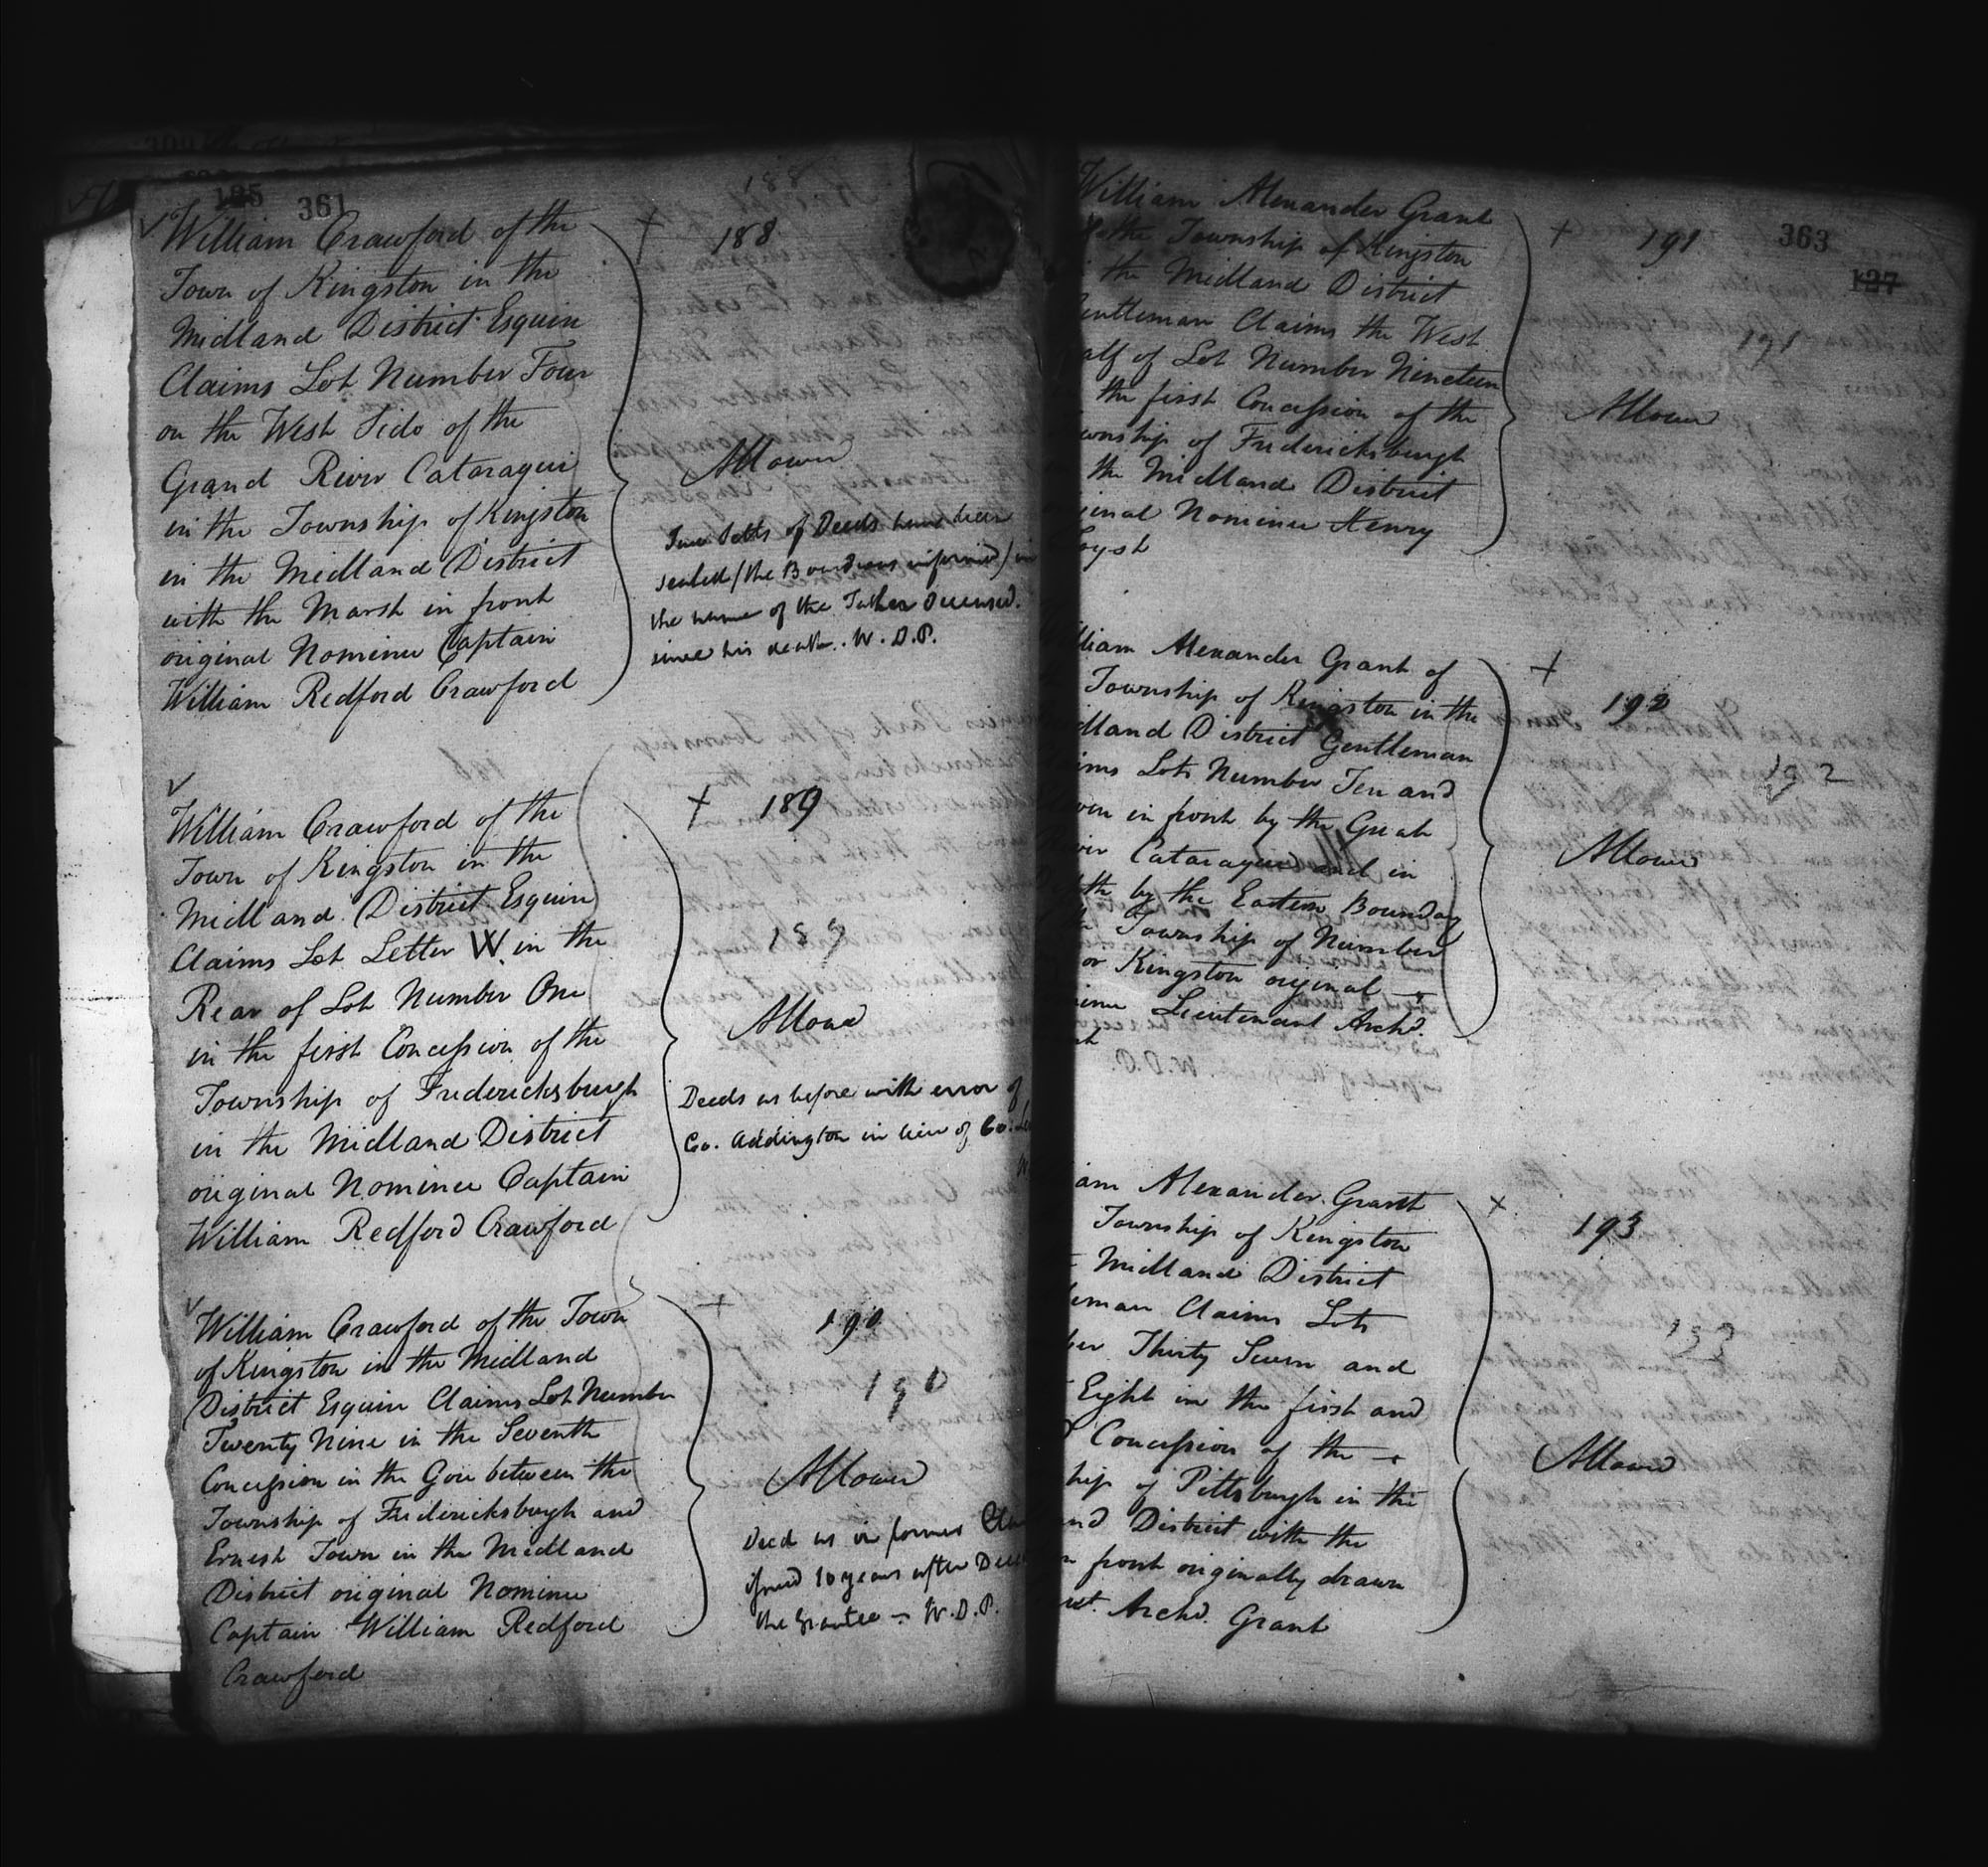 125 361
William Crawford of the
Town of Kingston in the
Midland District Esquire
Claims Lot Number Four
on the West Side of the
Grand River Cataraqui
in the Township of Kingston
in the Midland District
with the Marsh in front
original Nominee Captain
William Redford Crawford
+ 188
Allowed
Deeds have been
sealed (the Board was informed) in
the name of the Father Deceased
since his death. W. D. P.
William Crawford of the
Town of Kingston in the
Midland District Esquire
Claims Lot Letter W in the
Rear of Lot Number One
in the first Concession of the
Township of Fredericksburgh
in the Midland District
original Nominee Captain
William Redford Crawford
+ 189
189
Allowed
Deeds as before with error of
Co. Addington in lieu of Co.
William Crawford of the Town
of Kingston in the Midland
District Esquire Claims Lot Number
Twenty Nine in the Seventh
Concession in the Gore between the
Township of Fredericksburgh and
Ernest Town in the Midland
District original Nominee
Captain William Redford
Crawford
+ 190
190
Allowed
Deed as in former
issued 10 years after
the Grantee - W. D. P.
363
127
William Alexander Grant
the Township of Kingston
the Midland District
entleman Claims the West
alf of Lot Number Nineteen
the first Concession of the
ownship of Fredericksburgh
the Midland District
ginal Nominee Henry
oysh
+ 191
191
Allowed
lliam Alexander Grant of
Township of Kingston in the
dland District Gentleman
ims Lots Number Ten and
ven in front by the Great
iver Cataraqui and in
th by the Eastern Boundary
Township of Number
or Kingston original
inee Lieutenant Archd.
+ 192
192
Allowed
iam Alexander Grant
Township of Kingston
Midland District
leman Claims Lots
ber Thirty Seven and
Eight in the first and
Concession of the
hip of Pittsburgh in the
and District with the
n front originally drawn
Archd. Grant
+ 193
193
Allowed